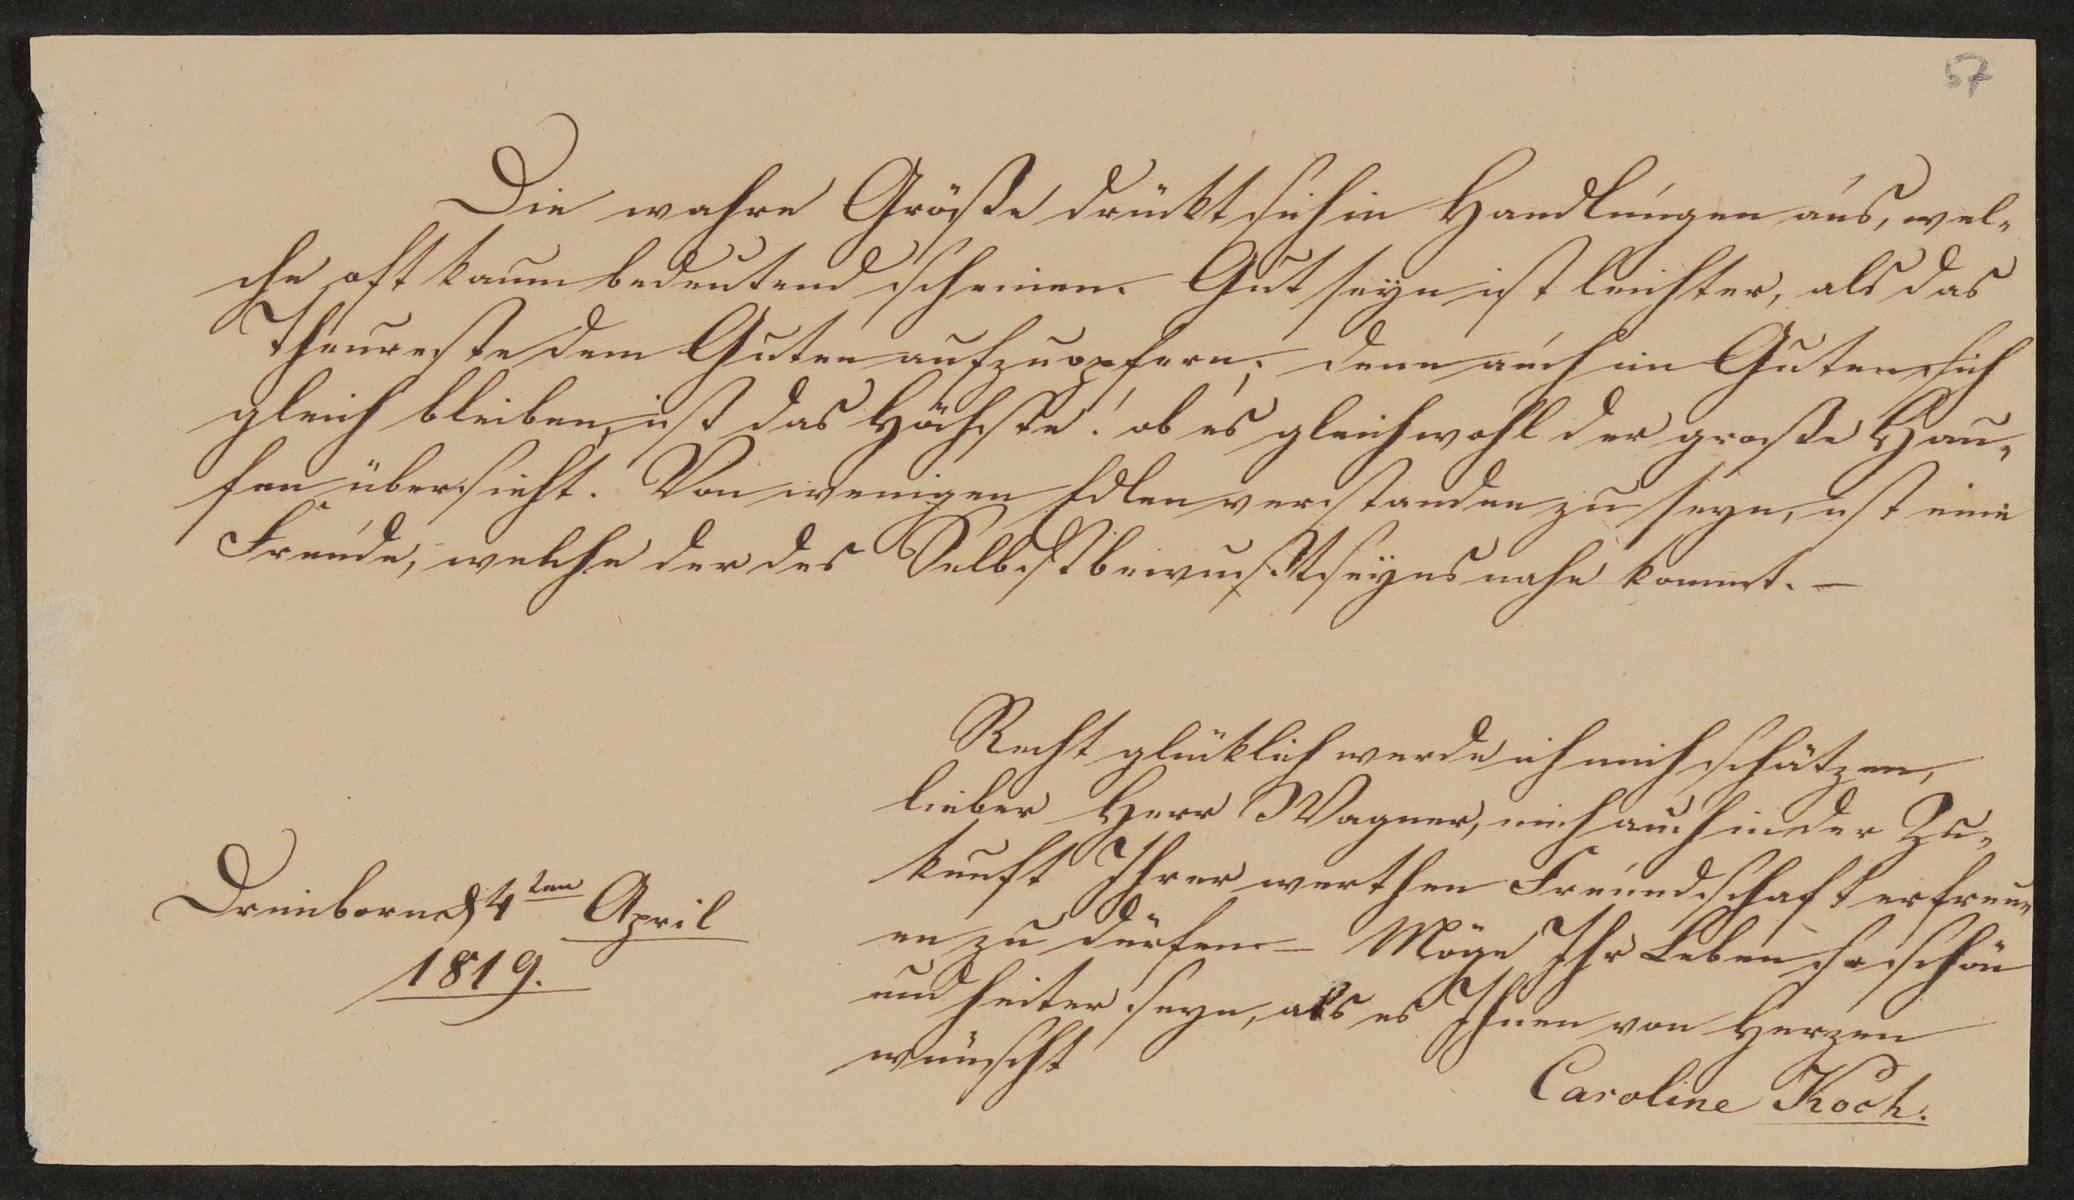 57
Die wahre Größe drückt sich in Handlungen aus, wel-
che oft kaum bedeutend scheinen. Gut seyn ist leichter, als das
Theureste dem Guten aufzuopfern; denn auch im Guten sich
gleich bleiben, ist das Höchste! ob es gleichwohl der große Hau-
fen übersieht. Von wenigen Edlen verstanden zu seyn, ist eine
Freude, welche der des Selbstbewußtseyns nahe kommt. —
Recht glücklich werde ich mich schätzen,
lieber Herr Wagner, mich auch in der Zu-
kunft Ihrer werthen Freundschaft erfreu-
en zu dürfen — Möge Ihr Leben so schön
und heiter seyn, als es Ihnen von Herzen
wünscht
Caroline Koch.
Dreiborn d 4ten April
1819.